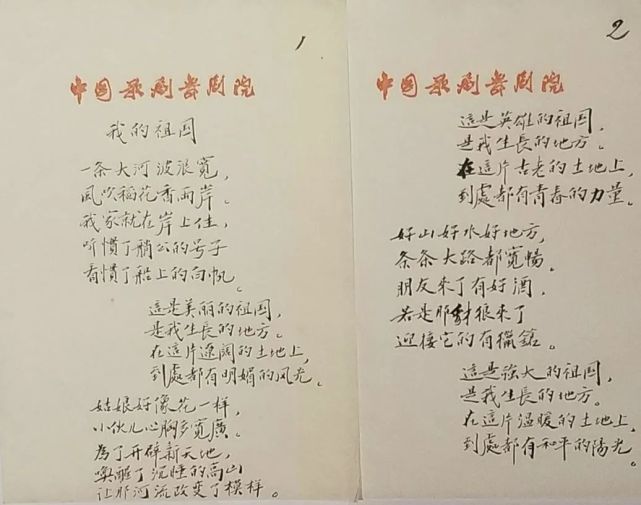 1
中国歌剧舞剧院
我的祖国
一条大河波浪寬，
風吹稻花香兩岸。
我家就在岸上住，
听慣了艄公的号子
看慣了船上的白帆。
這是美丽的祖国，
是我生長的地方。
在這片遼闊的土地上，
到處都有明媚的风光。
姑娘好像花一样，
小伙儿心胸多寬廣。
為了开辟新天地，
喚醒了沉睡的高山
让那河流改变了模样。
2
中国歌剧舞剧院
這是英雄的祖国，
是我生長的地方。
在這片古老的土地上，
到處都有青春的力量。
好山好水好地方，
条条大路都寬暢。
朋友来了有好酒，
若是那豺狼来了
迎接它的有獵鎗。
這是強大的祖国，
是我生長的地方。
在這片温暖的土地上，
到處都有和平的陽光。